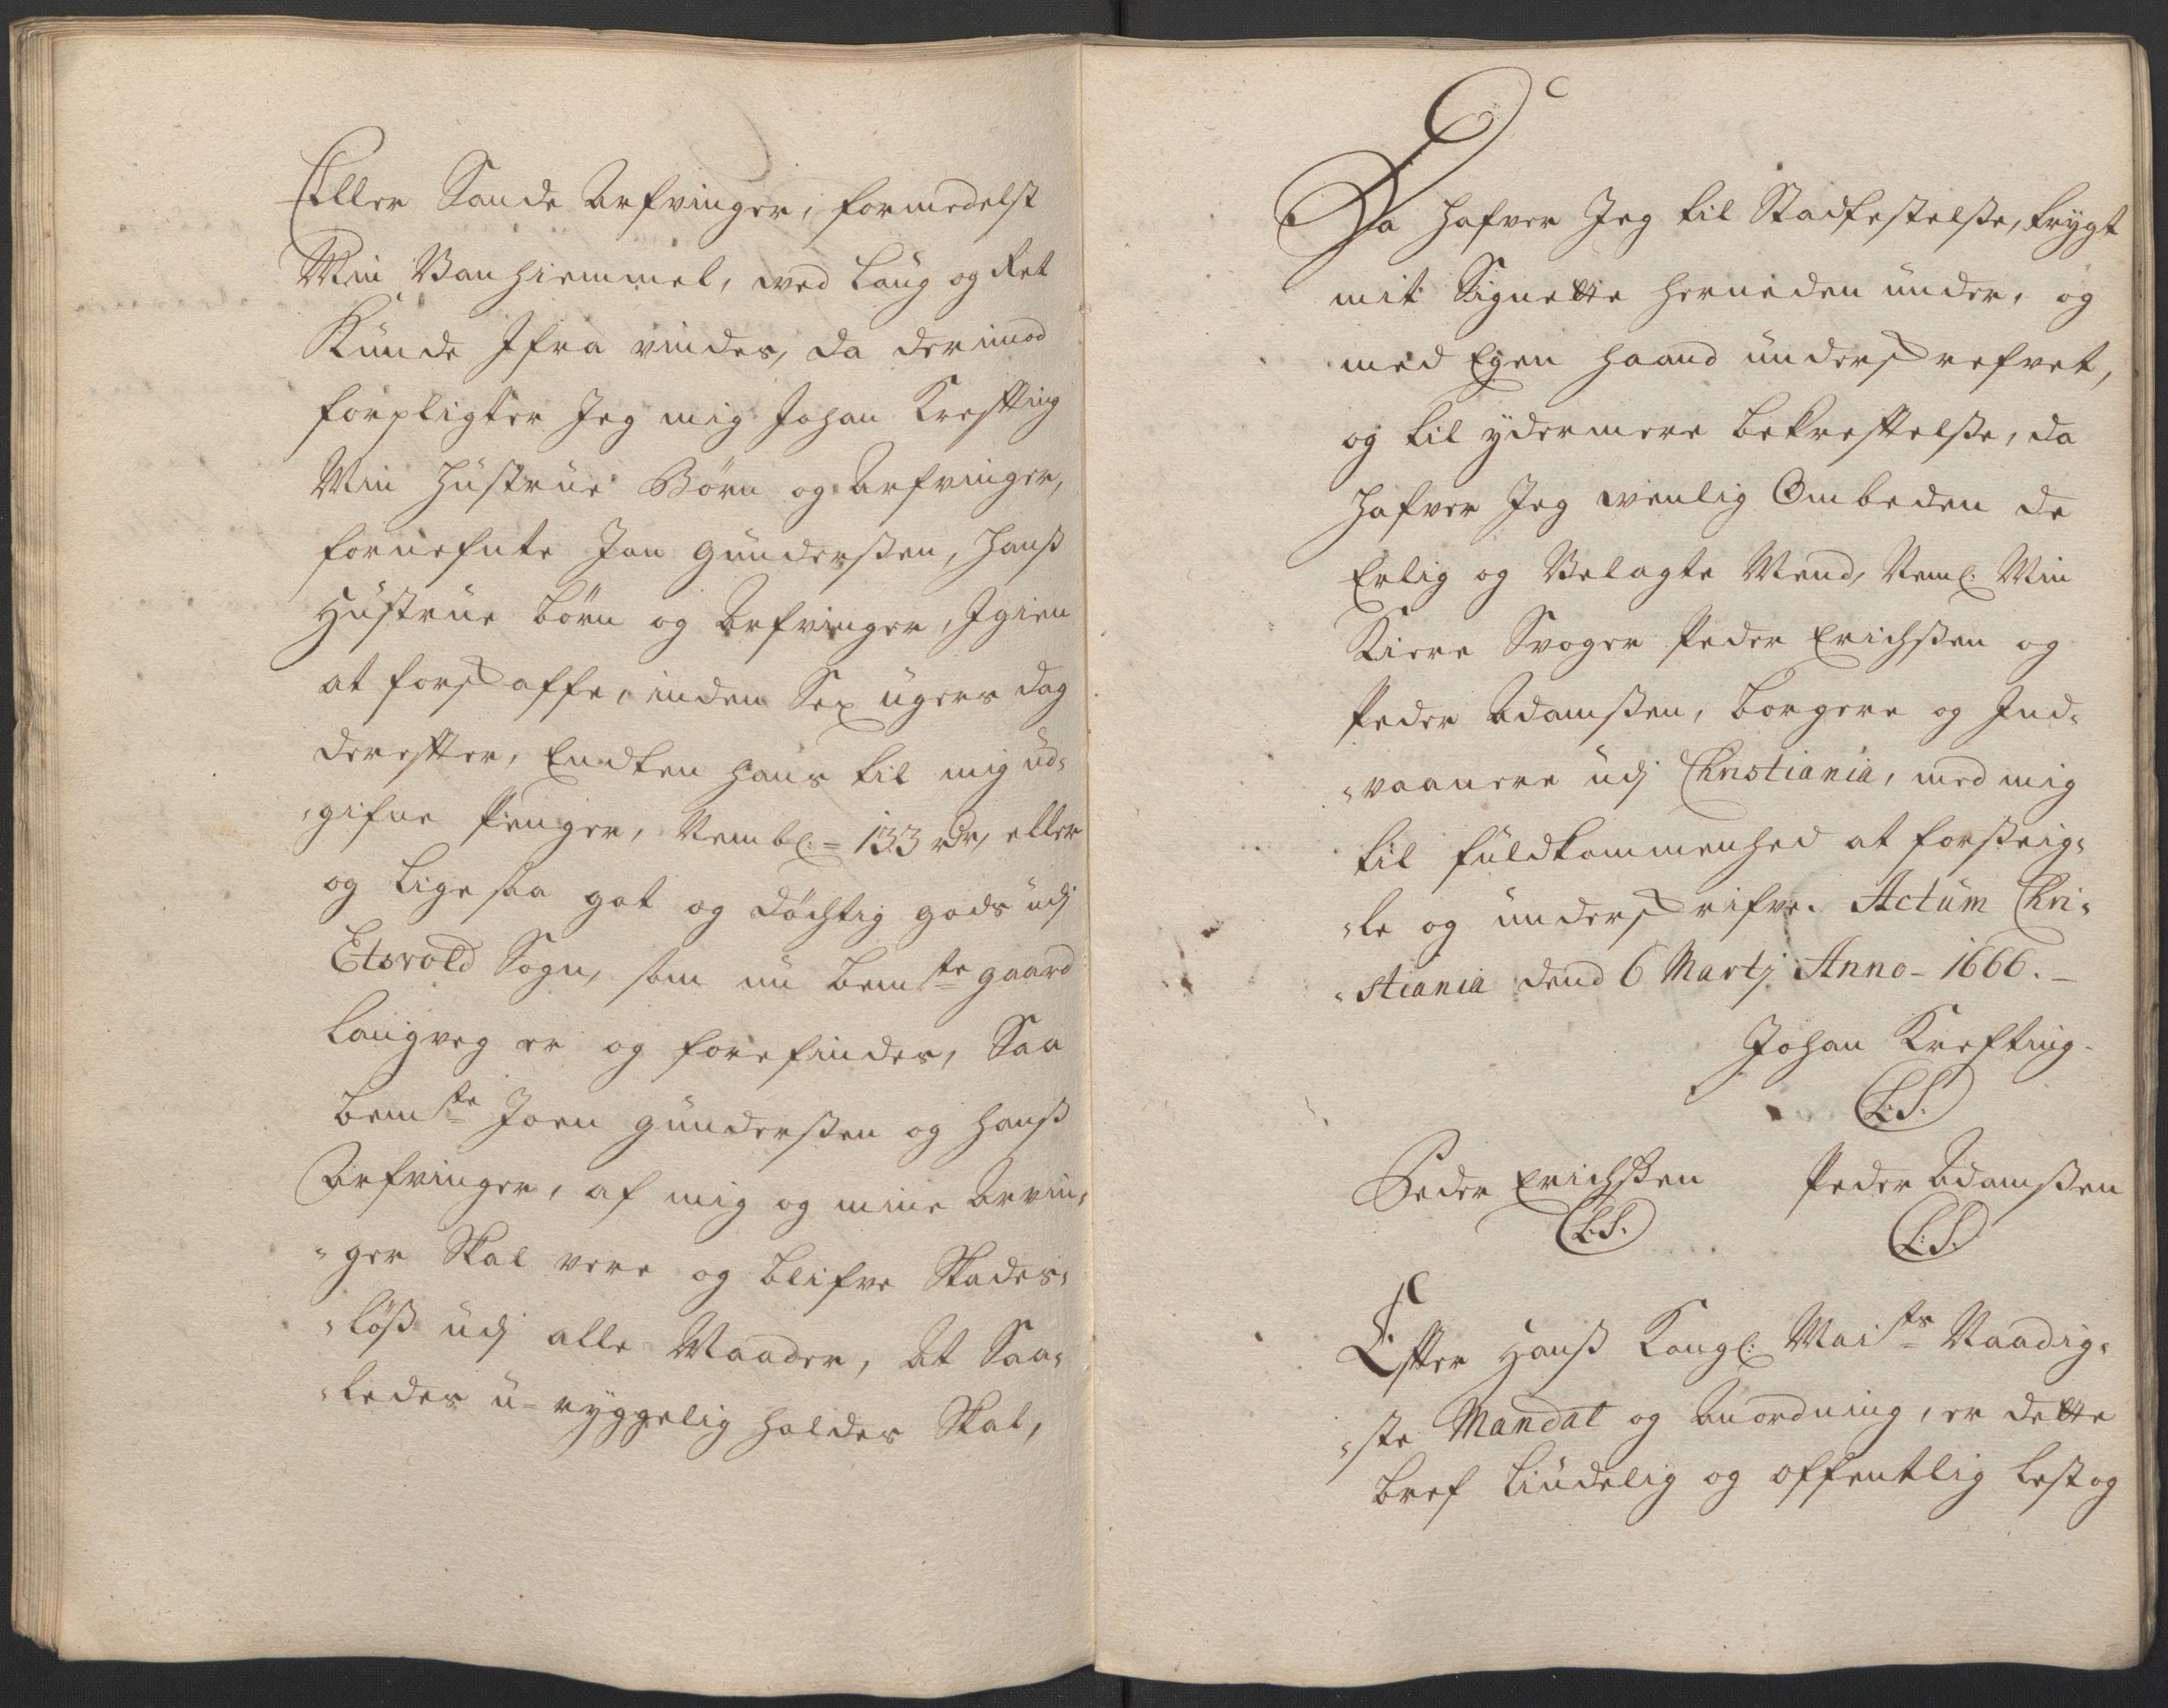 Eller Sande Arfvinger, formedelst
Min Vanhiemmel, wed Laug og Ret
Kunde Ifra vindes, da derimod
forpligter Jeg mig Johan Krefting
Min Hustrue Børn og Arfvinger,
fornefnte Jon Gunderßen, Hanß
Hustrue børn og Arfvinger, Igien
at forskaffe, inden Sex ugers dag
derefter, Endten hans til mig ud-
gifne Penger, Nembl: = 133 rdr, eller
og Lige saa got og døchtig gods udj
Etsvold Sogn, som nu bemte gaard
Langveg er og forefindes, Saa
bemte Joen Gunderßen og Hanß
Arfvinger, af mig og mine Arvin-
ger Skal vere og blifve Skades-
løß udj alle Maader, At Saa-
ledes u-ryggelig holdes Skal,
Da Hafver Jeg til Stadfestelße, trygt
mit Signette herneden under, og
med Egen haand underskrefvet,
og til ydermere bekreftelße, da
Hafver Jeg wenlig Ombeden de
Erlig og Velagte Mend, Neml: Min
Kiere Svoger Peder Erichßen og
Peder Adamßen, borgere og Ind-
vaanere udj Christiania, med mig
til fuldkommenhed at forseig-
le og underskrifve. Actum Chri-
stiania dend 6 Martj Anno - 1666. -
Johan Krefting.
L.S.
Peder Erichßen Peder Adamßen
L.S. L.S.
Efter Hanß Kongl: Maits Naadig-
ste Mandat og Anordning, er dette
bref liudelig og offentlig lest og